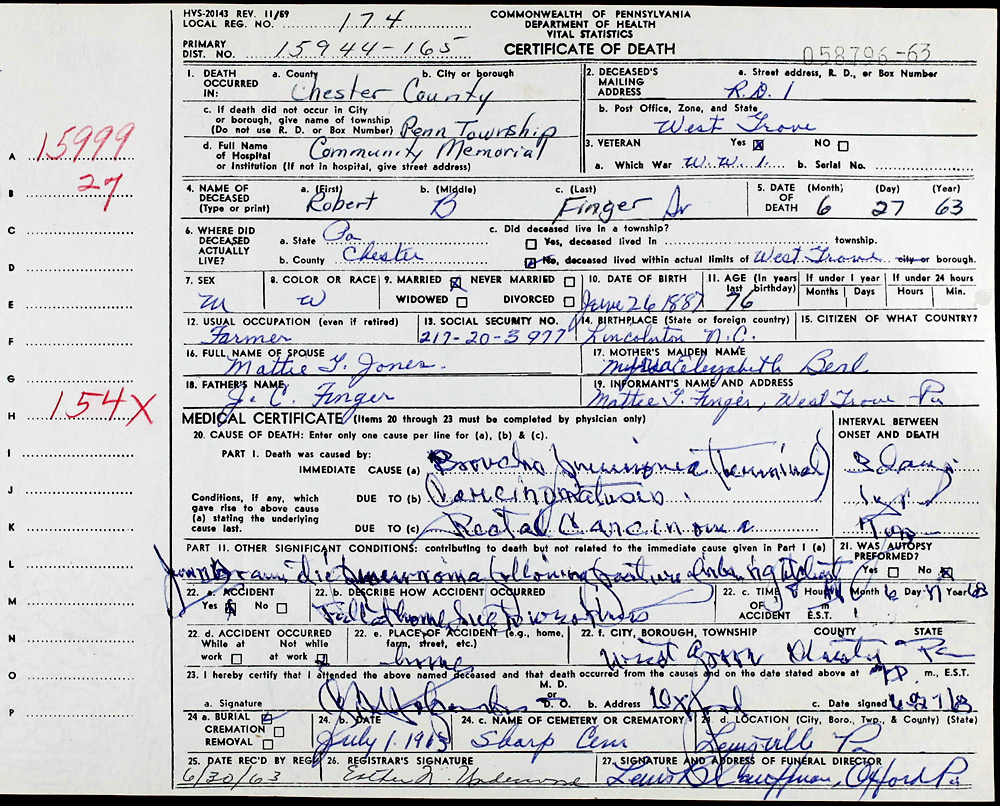 HVS-20143 REV. 11/59
LOCAL REG. NO. 174
COMMONWEALTH OF PENNSYLVANIA
DEPARTMENT OF HEALTH
VITAL STATISTICS
CERTIFICATE OF DEATH
PRIMARY DIST. NO. 15944-165
058796-63
1. DEATH OCCURRED IN: a. County b. City or borough
Chester County
c. If death did not occur in City or borough, give name of township (Do not use R. D. or Box Number) Penn Township
d. Full Name of Hospital or Institution (If not in hospital, give street address) Community Memorial
2. DECEASED'S MAILING ADDRESS a. Street address, R. D., or Box Number
R.D. 1
b. Post Office, Zone, and State
West Grove
3. VETERAN Yes NO
a. Which War W.W. 1. b. Serial No.
A 15999
B 27
C
D
E
F
G
H 154X
I
J
K
L
M
N
O
P
4. NAME OF DECEASED (Type or print) a. (First) b. (Middle) c. (Last)
Robert B Finger Sr
5. DATE OF DEATH (Month) (Day) (Year)
6 27 63
6. WHERE DID DECEASED ACTUALLY LIVE? a. State Pa
b. County Chester
c. Did deceased live in a township?
Yes, deceased lived in township.
No, deceased lived within actual limits of West Grove city or borough.
7. SEX 8. COLOR OR RACE 9. MARRIED NEVER MARRIED WIDOWED DIVORCED
M W
10. DATE OF BIRTH
June 26 1887
11. AGE (In years last birthday) 76
If under 1 year Months Days
If under 24 hours Hours Min.
12. USUAL OCCUPATION (even if retired)
Farmer
13. SOCIAL SECURITY NO.
217-20-3977
14. BIRTHPLACE (State or foreign country)
Lincolnton N.C.
15. CITIZEN OF WHAT COUNTRY?
16. FULL NAME OF SPOUSE
Mattie F. Jones.
17. MOTHER'S MAIDEN NAME
Elizabeth Beal
18. FATHER'S NAME
J. C. Finger
19. INFORMANT'S NAME AND ADDRESS
Mattie F. Finger, West Grove Pa
MEDICAL CERTIFICATE (Items 20 through 23 must be completed by physician only)
INTERVAL BETWEEN ONSET AND DEATH
20. CAUSE OF DEATH: Enter only one cause per line for (a), (b) & (c).
PART I. Death was caused by:
IMMEDIATE CAUSE (a) Broncho pneumonia (terminal) 3 days
Conditions, if any, which gave rise to above cause (a) stating the underlying cause last.
DUE TO (b) Carcinomatosis 1 yr
DUE TO (c) Rectal Carcinoma
PART II. OTHER SIGNIFICANT CONDITIONS: contributing to death but not related to the immediate cause given in Part I (a)
following fracture
21. WAS AUTOPSY PREFORMED?
Yes No
22. a. ACCIDENT
Yes No
22. b. DESCRIBE HOW ACCIDENT OCCURRED
Fell at home
22. c. TIME OF ACCIDENT Hour Month Day Year
m E.S.T.
6 63
22. d. ACCIDENT OCCURRED
While at work Not while at work
22. e. PLACE OF ACCIDENT (e.g., home, farm, street, etc.)
home
22. f. CITY, BOROUGH, TOWNSHIP COUNTY STATE
West Grove Chester Pa
23. I hereby certify that I attended the above named deceased and that death occurred from the causes and on the date stated above at m., E.S.T.
a. Signature M. D. or D. O. b. Address Oxford c. Date signed
24 a. BURIAL CREMATION REMOVAL
24. b. DATE
July 1. 1963
24. c. NAME OF CEMETERY OR CREMATORY
Sharp Cem
24. d. LOCATION (City, Boro., Twp., & County) (State)
Lewisville Pa
25. DATE REC'D BY REG.
6/30/63
26. REGISTRAR'S SIGNATURE
Esther N. Underwood
27. SIGNATURE AND ADDRESS OF FUNERAL DIRECTOR
Oxford Pa